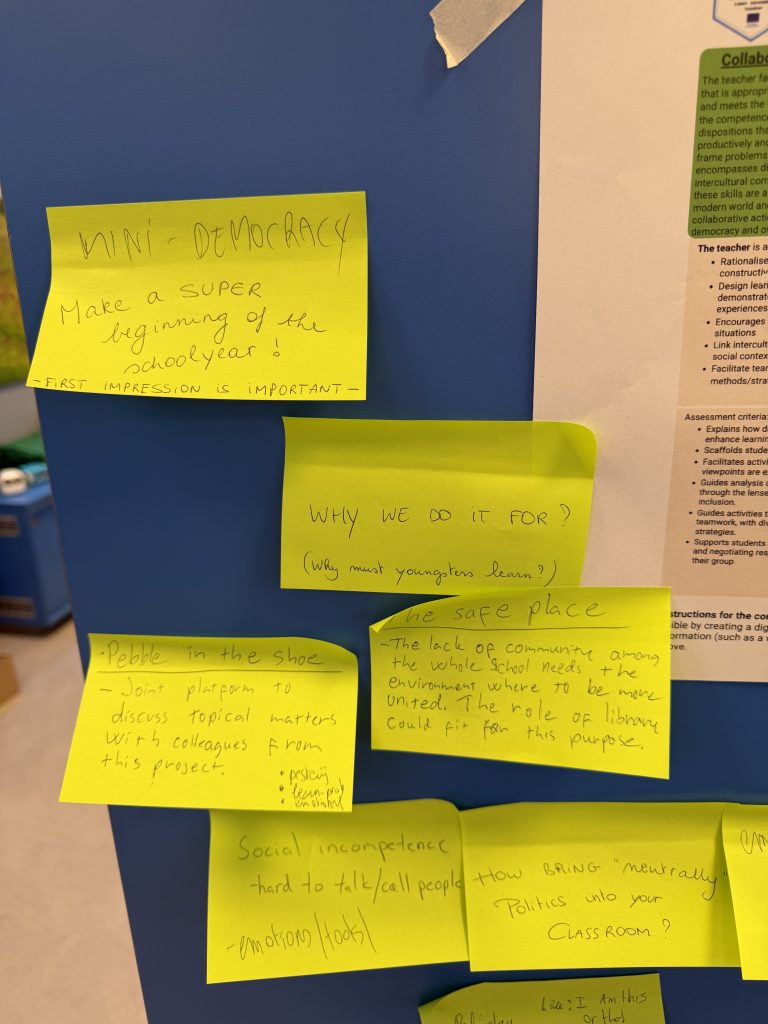 MINI-DEMOCRACY
Make a SUPER
beginning of the
schoolyear!
-FIRST IMPRESSION IS IMPORTANT-
WHY WE DO IT FOR?
(Why must youngsters learn?)
he safe place
-The lack of community among
the whole school needs the
environment where to be more
united. The role of library
could fit for this purpose.
·Pebble in the shoe
- Joint platform to
discuss topical matters
with colleagues from
this project.
emotional
Social incompetence
-hard to talk/call people
-emotions/tools/
HOW BRING "neutrally"
Politics into your
CLASSROOM?
Like: I Am this
or that
Teacher
Collabo
The teacher fa
that is appropr
and meets the
the competence
dispositions tha
productively and
frame problems
encompasses di
intercultural com
these skills are a
modern world an
collaborative activ
democracy and ov
The teacher is a
• Rationalise
constructiv
• Design lear
demonstrate
experiences
• Encourages
situations
• Link intercult
social contex
• Facilitate tear
methods/strat
Assessment criteria:
• Explains how di
enhance learnin
• Scaffolds stude
• Facilitates activi
viewpoints are e
• Guides analysis o
through the lense
inclusion.
• Guides activities t
teamwork, with div
strategies.
• Supports students
and negotiating res
their group
structions for the co
ible by creating a dig
ormation (such as a v
ove.